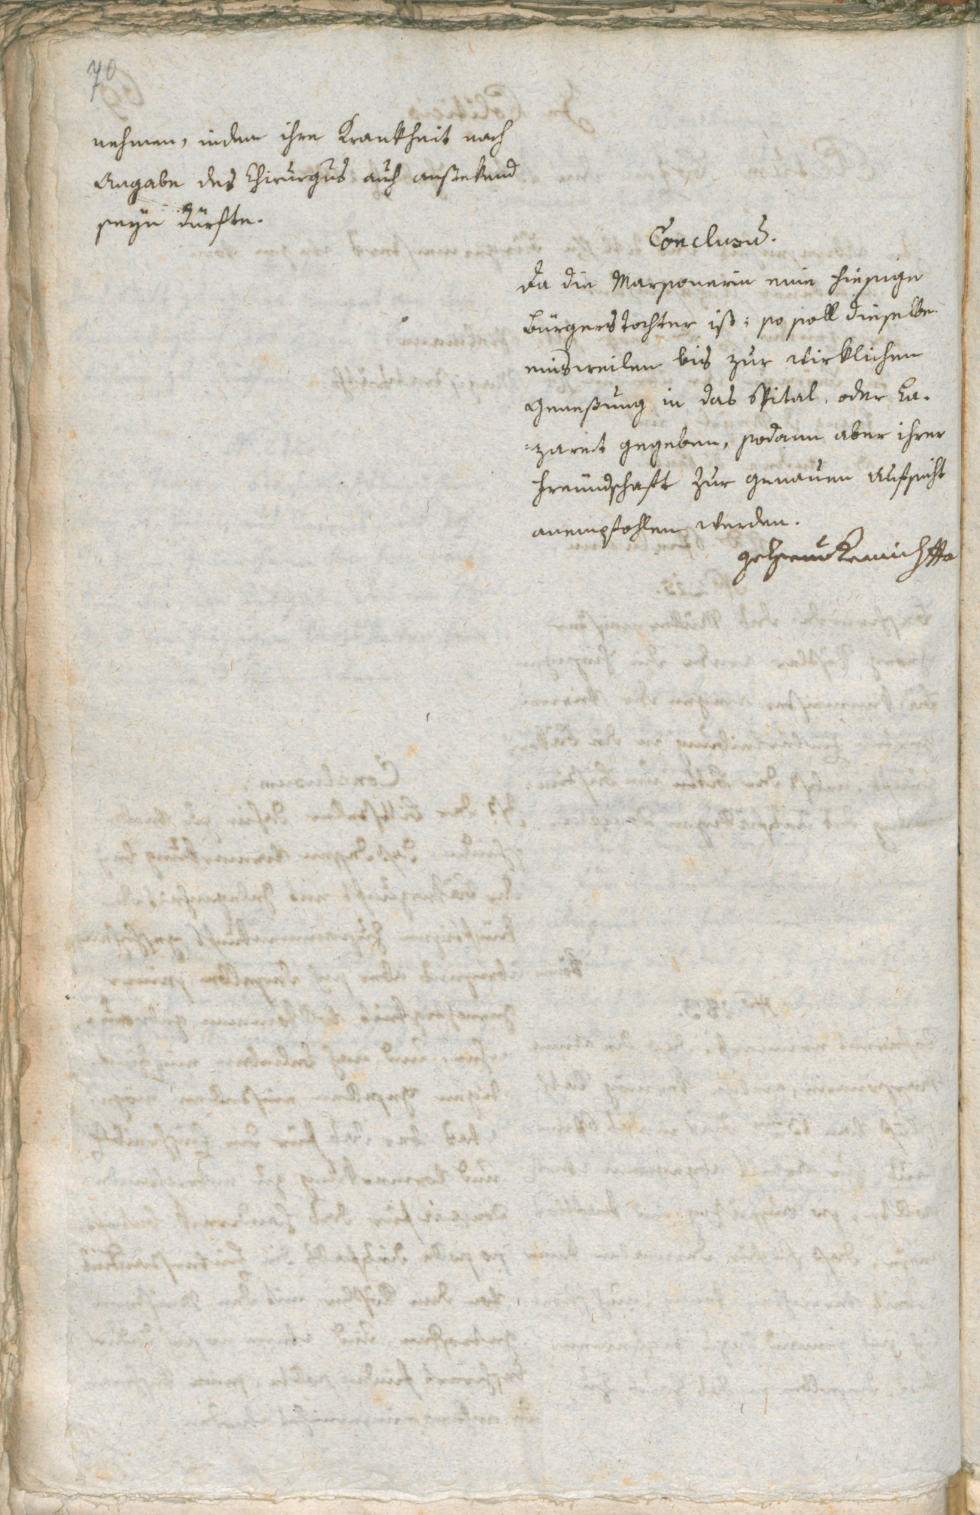 70
nehmen, indem ihre Krankheit nach
Angabe des Chirurgus auch anstekend
seyn dürfte.
Conclusū.
Da die Marsonerin eine hiesige
Bürgerstochter ist; so soll dieselbe
einsweilen bis zur wirklichen
Genesung in das Spital, oder La-
zaret gegeben, sodann aber ihrer
Freundschaft zur genauen Aufsicht
anempfohlen werden.